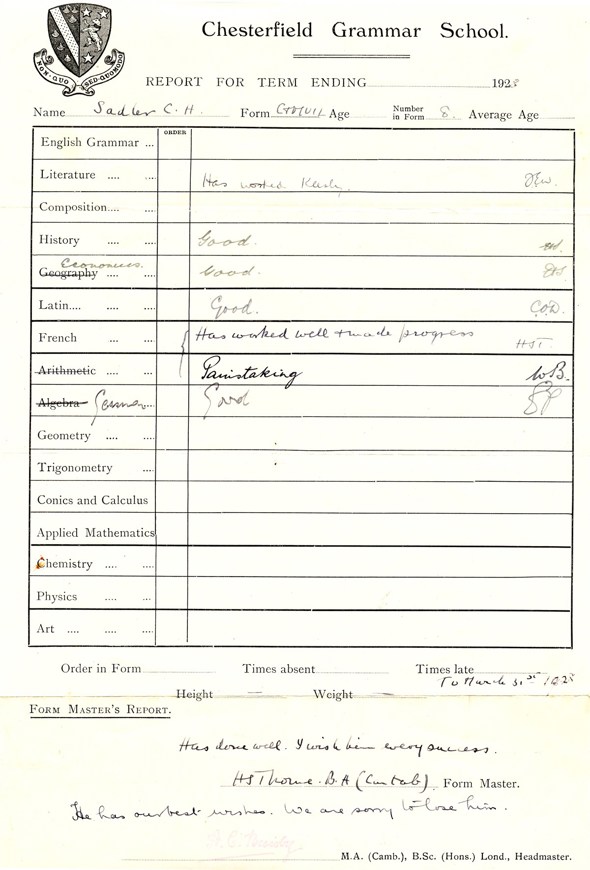 NON·QUO SED·QUOMODO
Chesterfield Grammar School.
REPORT FOR TERM ENDING 1928
Name Sadler C. H. Form Age Number in Form 8. Average Age
ORDER
English Grammar ...
Literature .... .... Has worked
Composition.... ....
History .... .... Good.
Economics.
Geography .... .... Good.
Latin.... .... .... Good. C.O.D.
French .... .... Has worked well + made progress HST.
Arithmetic .... .... Painstaking WB.
Algebra German .... Good
Geometry .... ....
Trigonometry ....
Conics and Calculus
Applied Mathematics
Chemistry .... ....
Physics .... ....
Art .... .... ....
Order in Form Times absent Times late
To March 31st 1928
Height — Weight —
FORM MASTER'S REPORT.
Has done well. I wish him every success.
HSThorne. B.A (Cantab). Form Master.
He has our best wishes. We are sorry to lose him.
M.A. (Camb.), B.Sc. (Hons.) Lond., Headmaster.